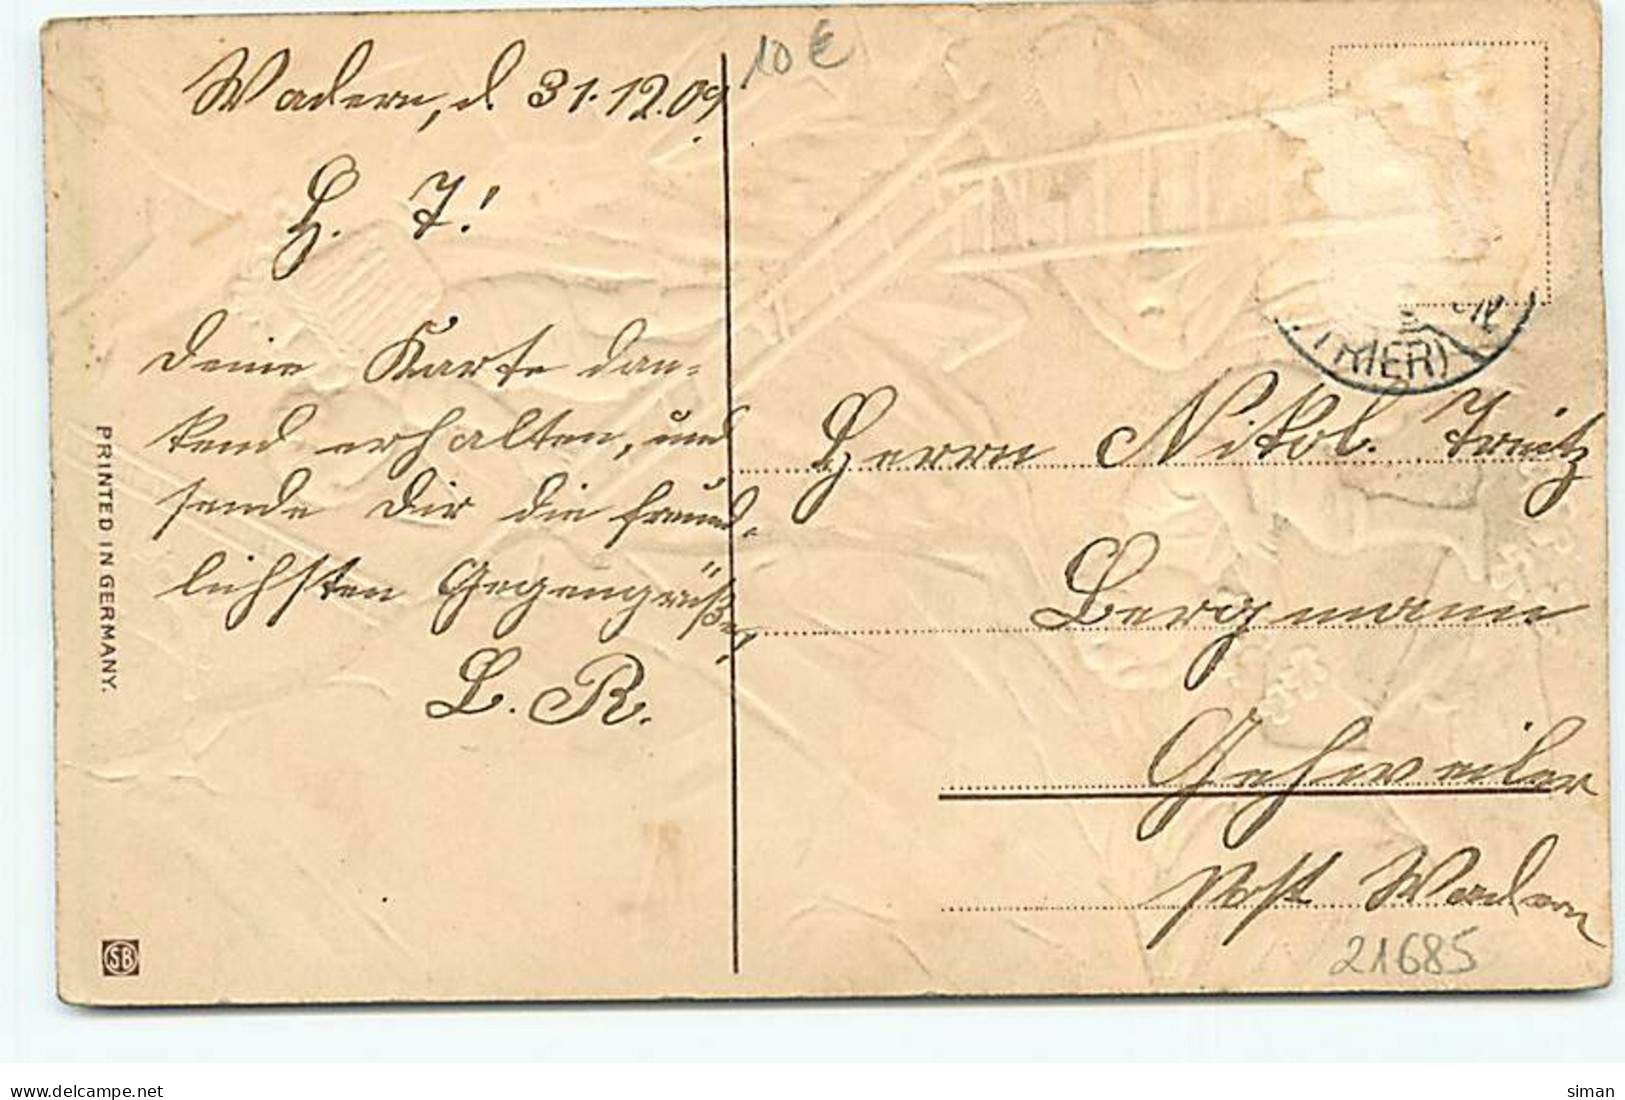 10 €
Wadern, d. 31.12.09.
H. F!
Deine Karte dan-
kend erhalten, und
sende Dir die freund-
lichsten Gegengrüße,
L. R.
PRINTED IN GERMANY.
SB
(TRIER)
Herrn Nikol.
Bergmann
Gehweiler
Post Wadern
21685
delcampe.net
siman